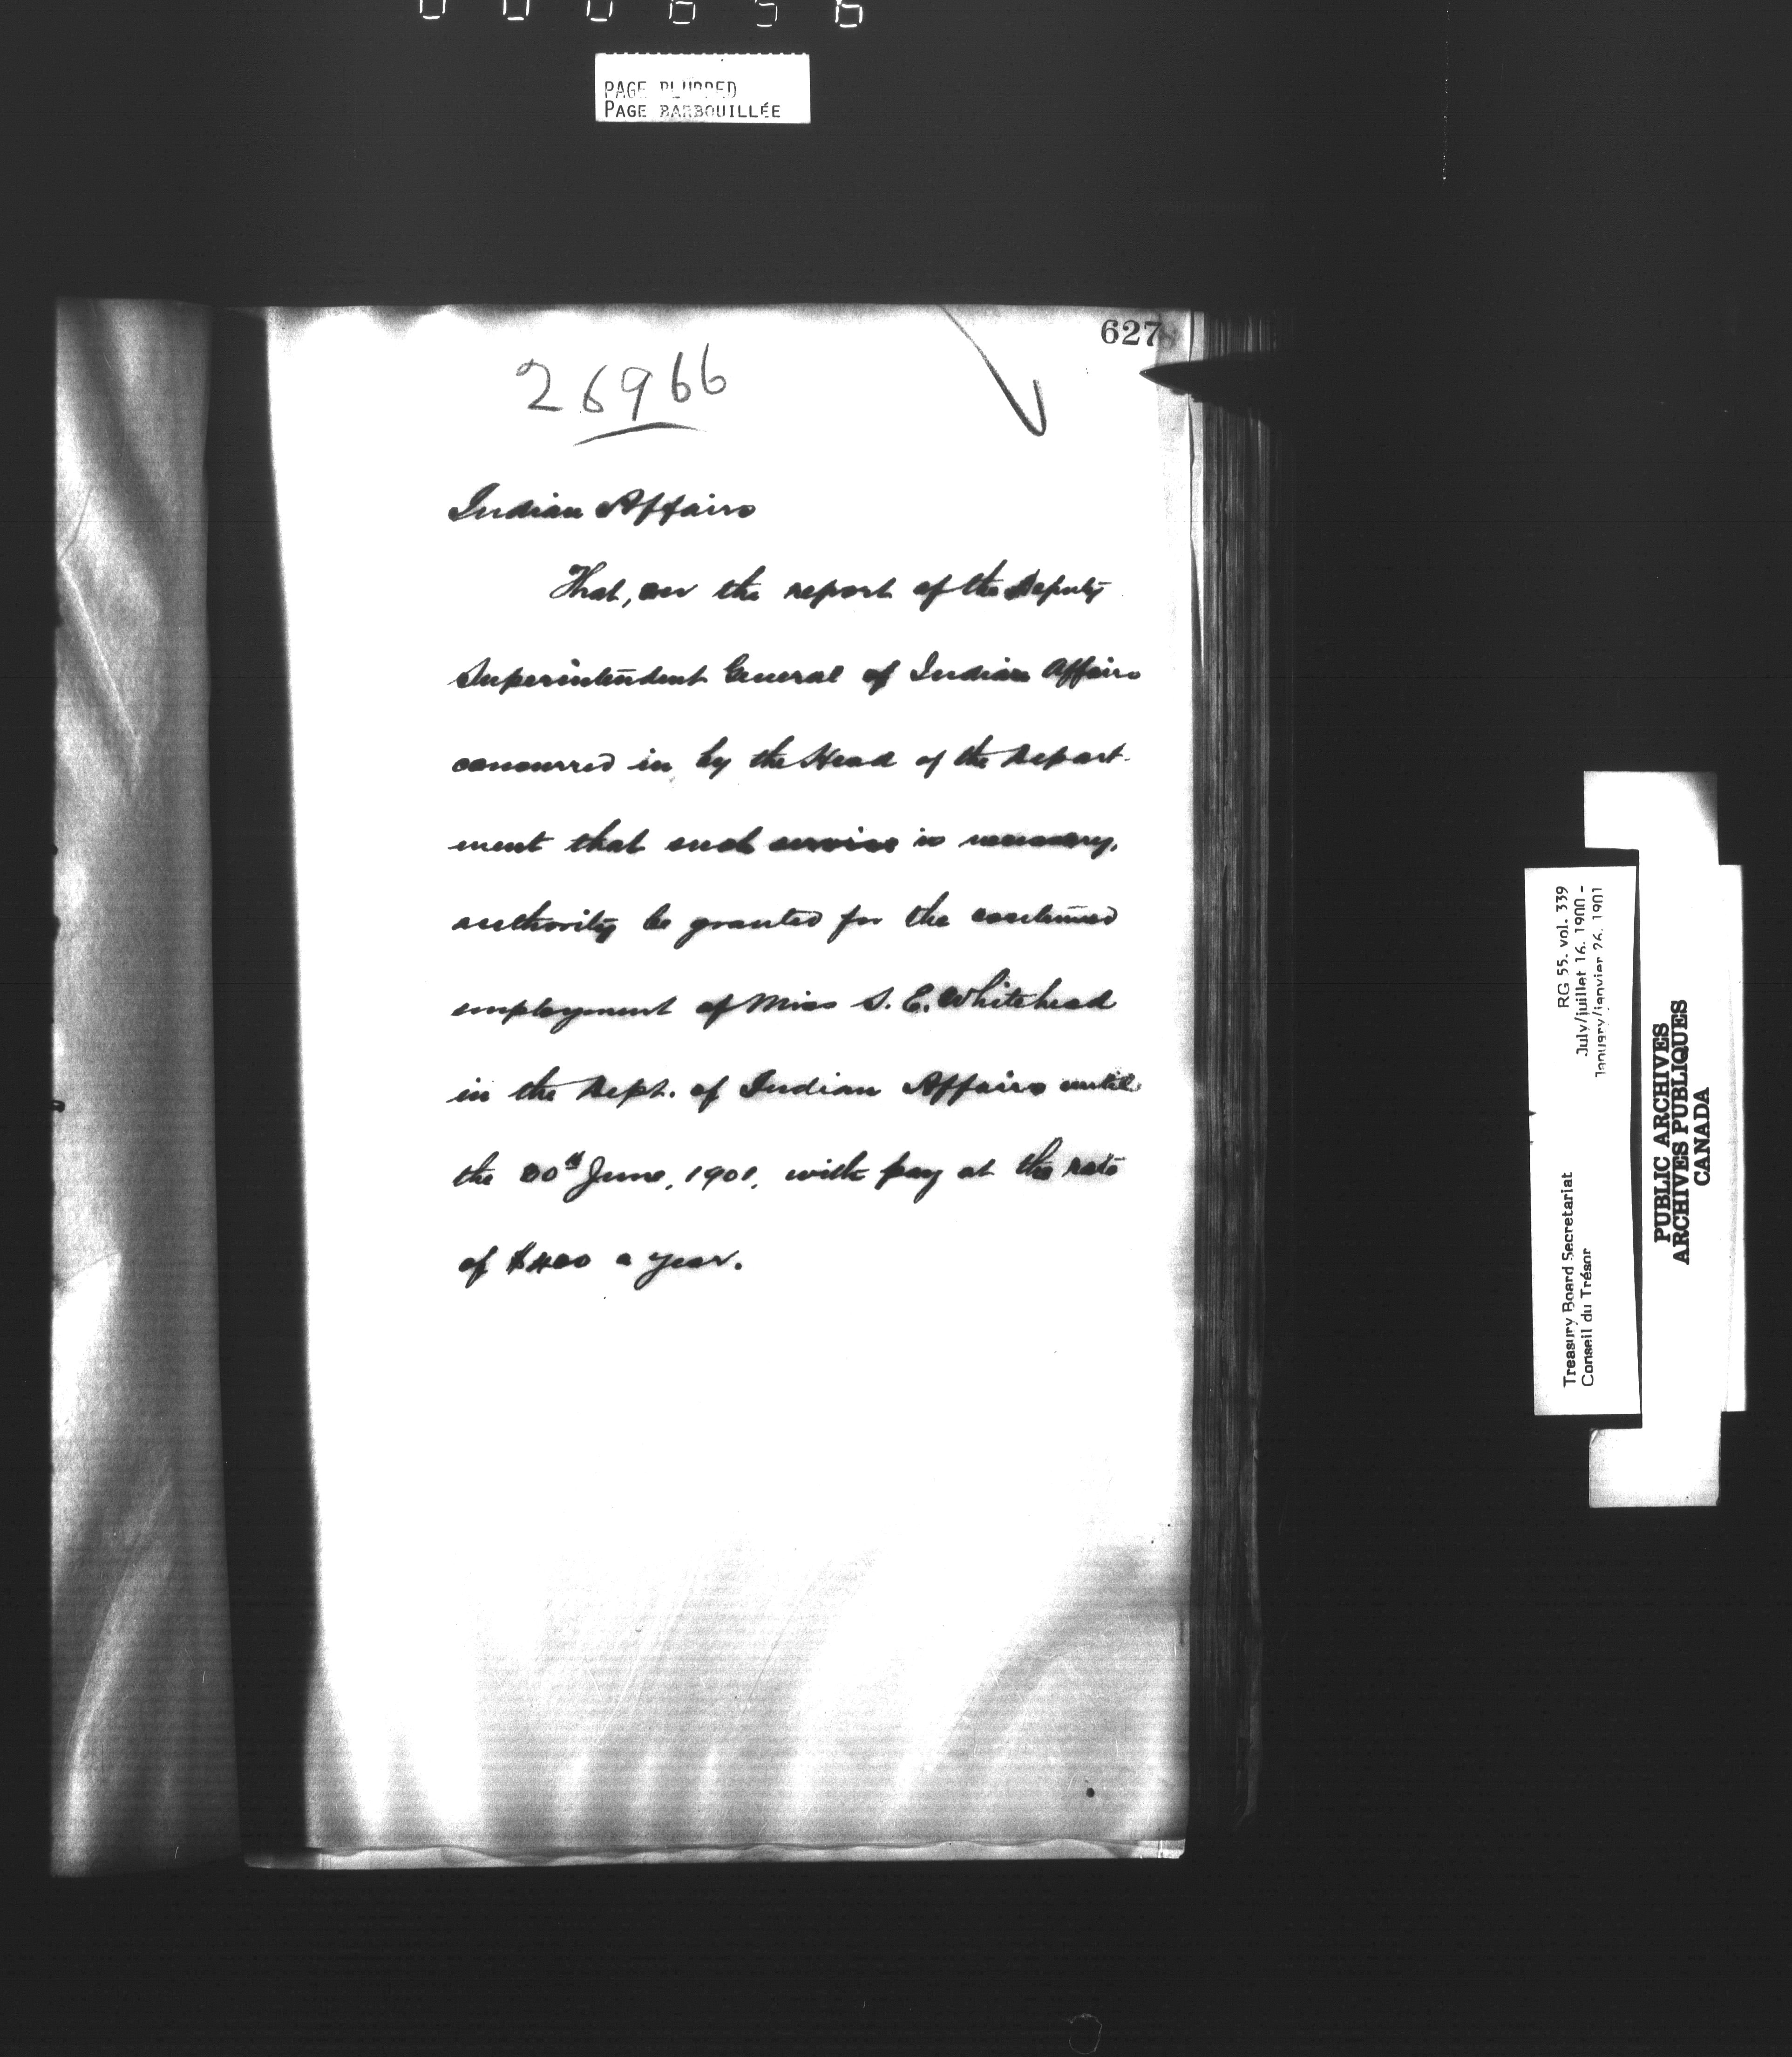 PAGE BLURRED
PAGE BARBOUILLÉE
627
26966
Indian Affairs
That, on the report of the Deputy
Superintendent General of Indian Affairs
concurred in by the Head of the Depart-
ment that such service is necessary,
authority be granted for the continued
employment of Miss S. E. Whitehead
in the Dept. of Indian Affairs until
the 30th June, 1901, with pay at the rate
of $400 a year.
RG 55. vol. 339
July/juillet 16. 1900 -
January/janvier 26. 1901
Treasury Board Secretariat
Conseil du Trésor
PUBLIC ARCHIVES
ARCHIVES PUBLIQUES
CANADA